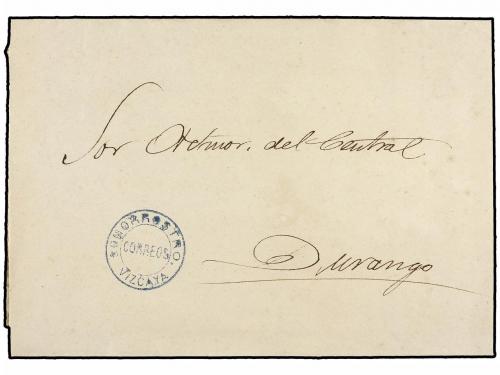 Sor Admor. del Central
SOMORROSTRO.
CORREOS
VIZCAYA
Durango